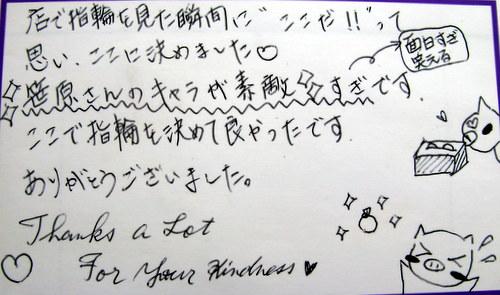 店で指輪を見た瞬間に"ここだ!!"って
思い、ここに決めました♡
笹原さんのキャラが素敵すぎです。
面白すぎ
笑える
ここで指輪を決めて良かったです。
ありがとうございました。
Thanks a Lot
For Your Kindness ♥